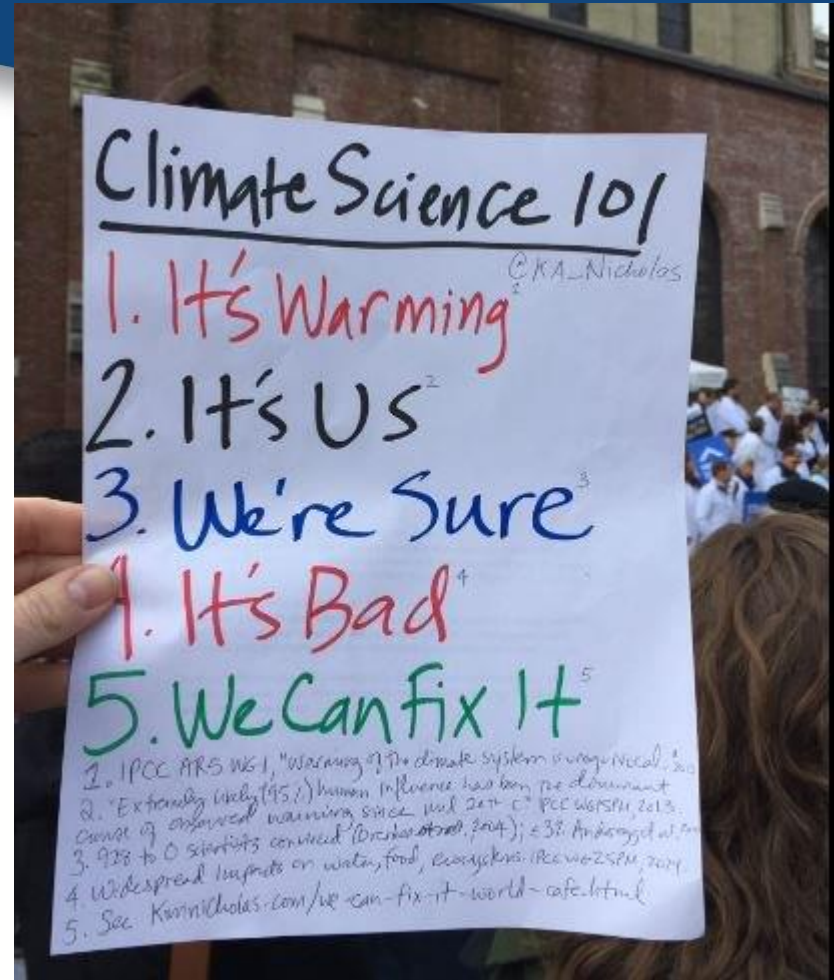 Climate Science 101
@KA_Nicholas
1. It's Warming¹
2. It's Us²
3. We're Sure³
4. It's Bad⁴
5. We Can Fix It⁵
1. IPCC AR5 WG1, "Warming of the climate system is unequivocal."
2. "Extremely likely (95%) human influence has been the dominant
cause of observed warming since mid 20th C" IPCC WG1SPM, 2013.
3. 928 to 0 scientists convinced 2004);
4. Widespread impacts on water, food, ecosystems. IPCC WG2SPM, 2014.
5. See Kimnicholas.com/we-can-fix-it-world-cafe.html